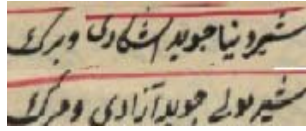 شیر دنیا جوید اشکاری و برگ
شیر مولی جوید آزادی و مرگ